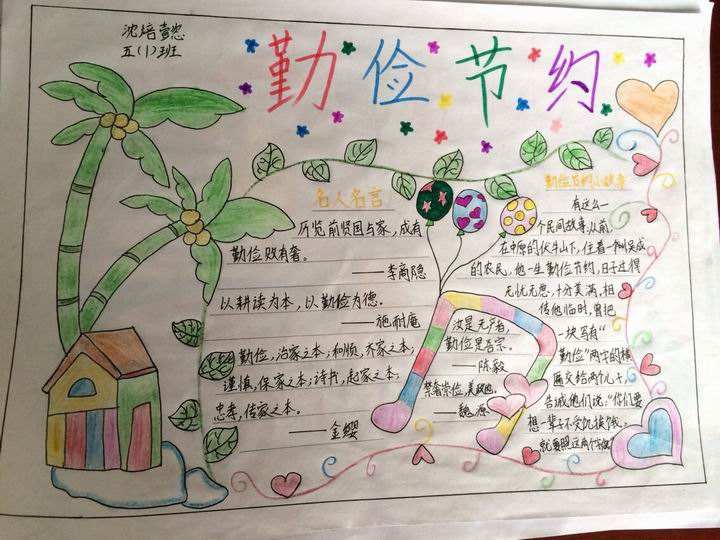 沈焙壹
五(1)班
勤俭节约
名人名言
历览前贤国与家，成有
勤俭败有奢。
——李商隐
以耕读为本，以勤俭为德。
——施耐庵
勤俭，治家之本；和顺，齐家之本；
谨慎，保家之本；诗书，起家之本；
忠孝，传家之本。
金缨
汝是无产者，
勤俭是吾宗。
——陈毅
——魏源
勤俭节约小故事
有这么一
个民间故事，从前，
在中原的伏牛山下，住着一个叫吴成
的农民，他一生勤俭节约，日子过得
无忧无虑，十分美满，相
传他临时，曾把
一块写有“
勤俭”两字的横
匾交给两个儿子，
告诫他们说：“你们要
想一辈子不受饥挨饿，
就要照这两个字做